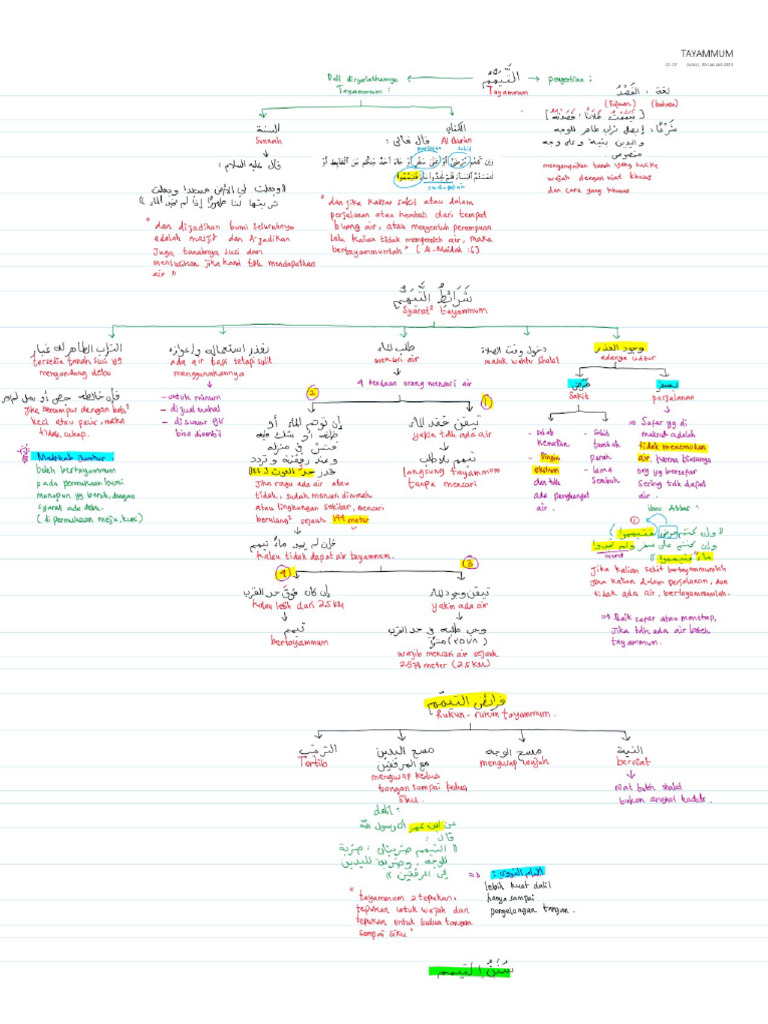 TAYAMMUM
Dalil disyariatkannya
Tayammum :
التَّيَمُّمُ
Tayammum
pengertian :
لغة : القَصْدُ
(tujuan) (bahasa)
شرعًا : إيصال تراب طاهر للوجه
واليدين بنية وعلى وجه
مخصوص.
menyampaikan tanah yang suci ke
wajah dengan niat khusus
dan cara yang khusus
السنة
Sunnah
قال عليه السلام :
"dan dijadikan bumi seluruhnya
adalah masjid dan dijadikan
juga tanahnya suci dan
mensucikan jika kami tdk mendapatkan
air"
الكتاب
Al Quran
قال تعالى :
وَإِن كُنتُم مَّرْضَىٰ أَوْ عَلَىٰ سَفَرٍ أَوْ جَاءَ أَحَدٌ مِّنكُم مِّنَ الْغَائِطِ أَوْ
لَامَسْتُمُ النِّسَاءَ فَلَمْ تَجِدُوا مَاءً فَتَيَمَّمُوا
"dan jika kalian sakit atau dalam
perjalanan atau kembali dari tempat
buang air, atau menyentuh perempuan
lalu kalian tidak memperoleh air, maka
bertayammumlah" [Al-Maidah :6]
شَرَائِطُ التَّيَمُّمِ
Syarat² tayammum
التراب الطاهر له غبار
tersedia tanah suci yg
mengandung debu
فإن خالطه جص أو رمل لم يجز
jika tercampur dengan batu²
kecil atau pasir, maka
tidak cukup.
boleh bertayammum
pada permukaan bumi
manapun yg bersih, dengan
syarat ada debu.
(di permukaan meja, kursi)
تعذر استعماله وإعوازه
ada air tapi tetapi sulit
menggunakannya
- untuk minum
- dijual mahal
bisa diambil
طلب الماء
mencari air
4 keadaan orang mencari air
دخول وقت الصلاة
masuk waktu shalat
وجود العذر
adanya udzur
مرض
Sakit
سفر
perjalanan
- dingin
ekstrim
dan tdk
ada penghangat
air.
- Sakit
tambah
parah
- lama
sembuh
⇒ Safar yg di
maksud adalah
tidak menemukan
air, karena biasanya
org yg bersafar
sering tdk dapat
air.
ibnu Abbas :
Jika kalian sakit bertayammumlah
jika kalian dalam perjalanan, dan
tidak ada air, bertayammumlah.
⇒ Baik safar atau menetap,
jika tdk ada air boleh
tayammum.
①
تيقن فقد الماء
yakin tdk ada air
تيمم بلا طلب
langsung tayammum
tanpa mencari
②
إن توهم الماء أو
Jika ragu ada air atau
tidak, sudah mencari dirumah
atau lingkungan sekitar, mencari
berulang² sejauh 144 meter
فإن لم يجد ماء تيمم
kalau tidak dapat air tayammum.
③
تيقن وجود الماء
yakin ada air
وجب طلبه في حد القرب
wajib mencari air sejauh
(2.5 KM)
④
إن كان فوق حد القرب
kalau lebih dari 2.5 KM
تيمم
bertayammum
فرائض التيمم
Rukun-rukun tayammum.
الترتيب
Tertib
مسح اليدين
مع المرفقين
mengusap kedua
tangan sampai kedua
siku.
مسح الوجه
mengusap wajah
النية
berniat
Niat boleh shalat
bukan angkat hadats.
عن ابن عمر أن رسول الله ﷺ
قال :
" التيمم ضربتان : ضربة
للوجه ، وضربة لليدين
إلى المرفقين "
"tayammum 2 tepukan,
tepukan untuk wajah dan
tepukan untuk kedua tangan
sampai siku"
الإمام النووي :
lebih kuat dalil
hanya sampai
pergelangan tangan.
سُنَنُ التيمم